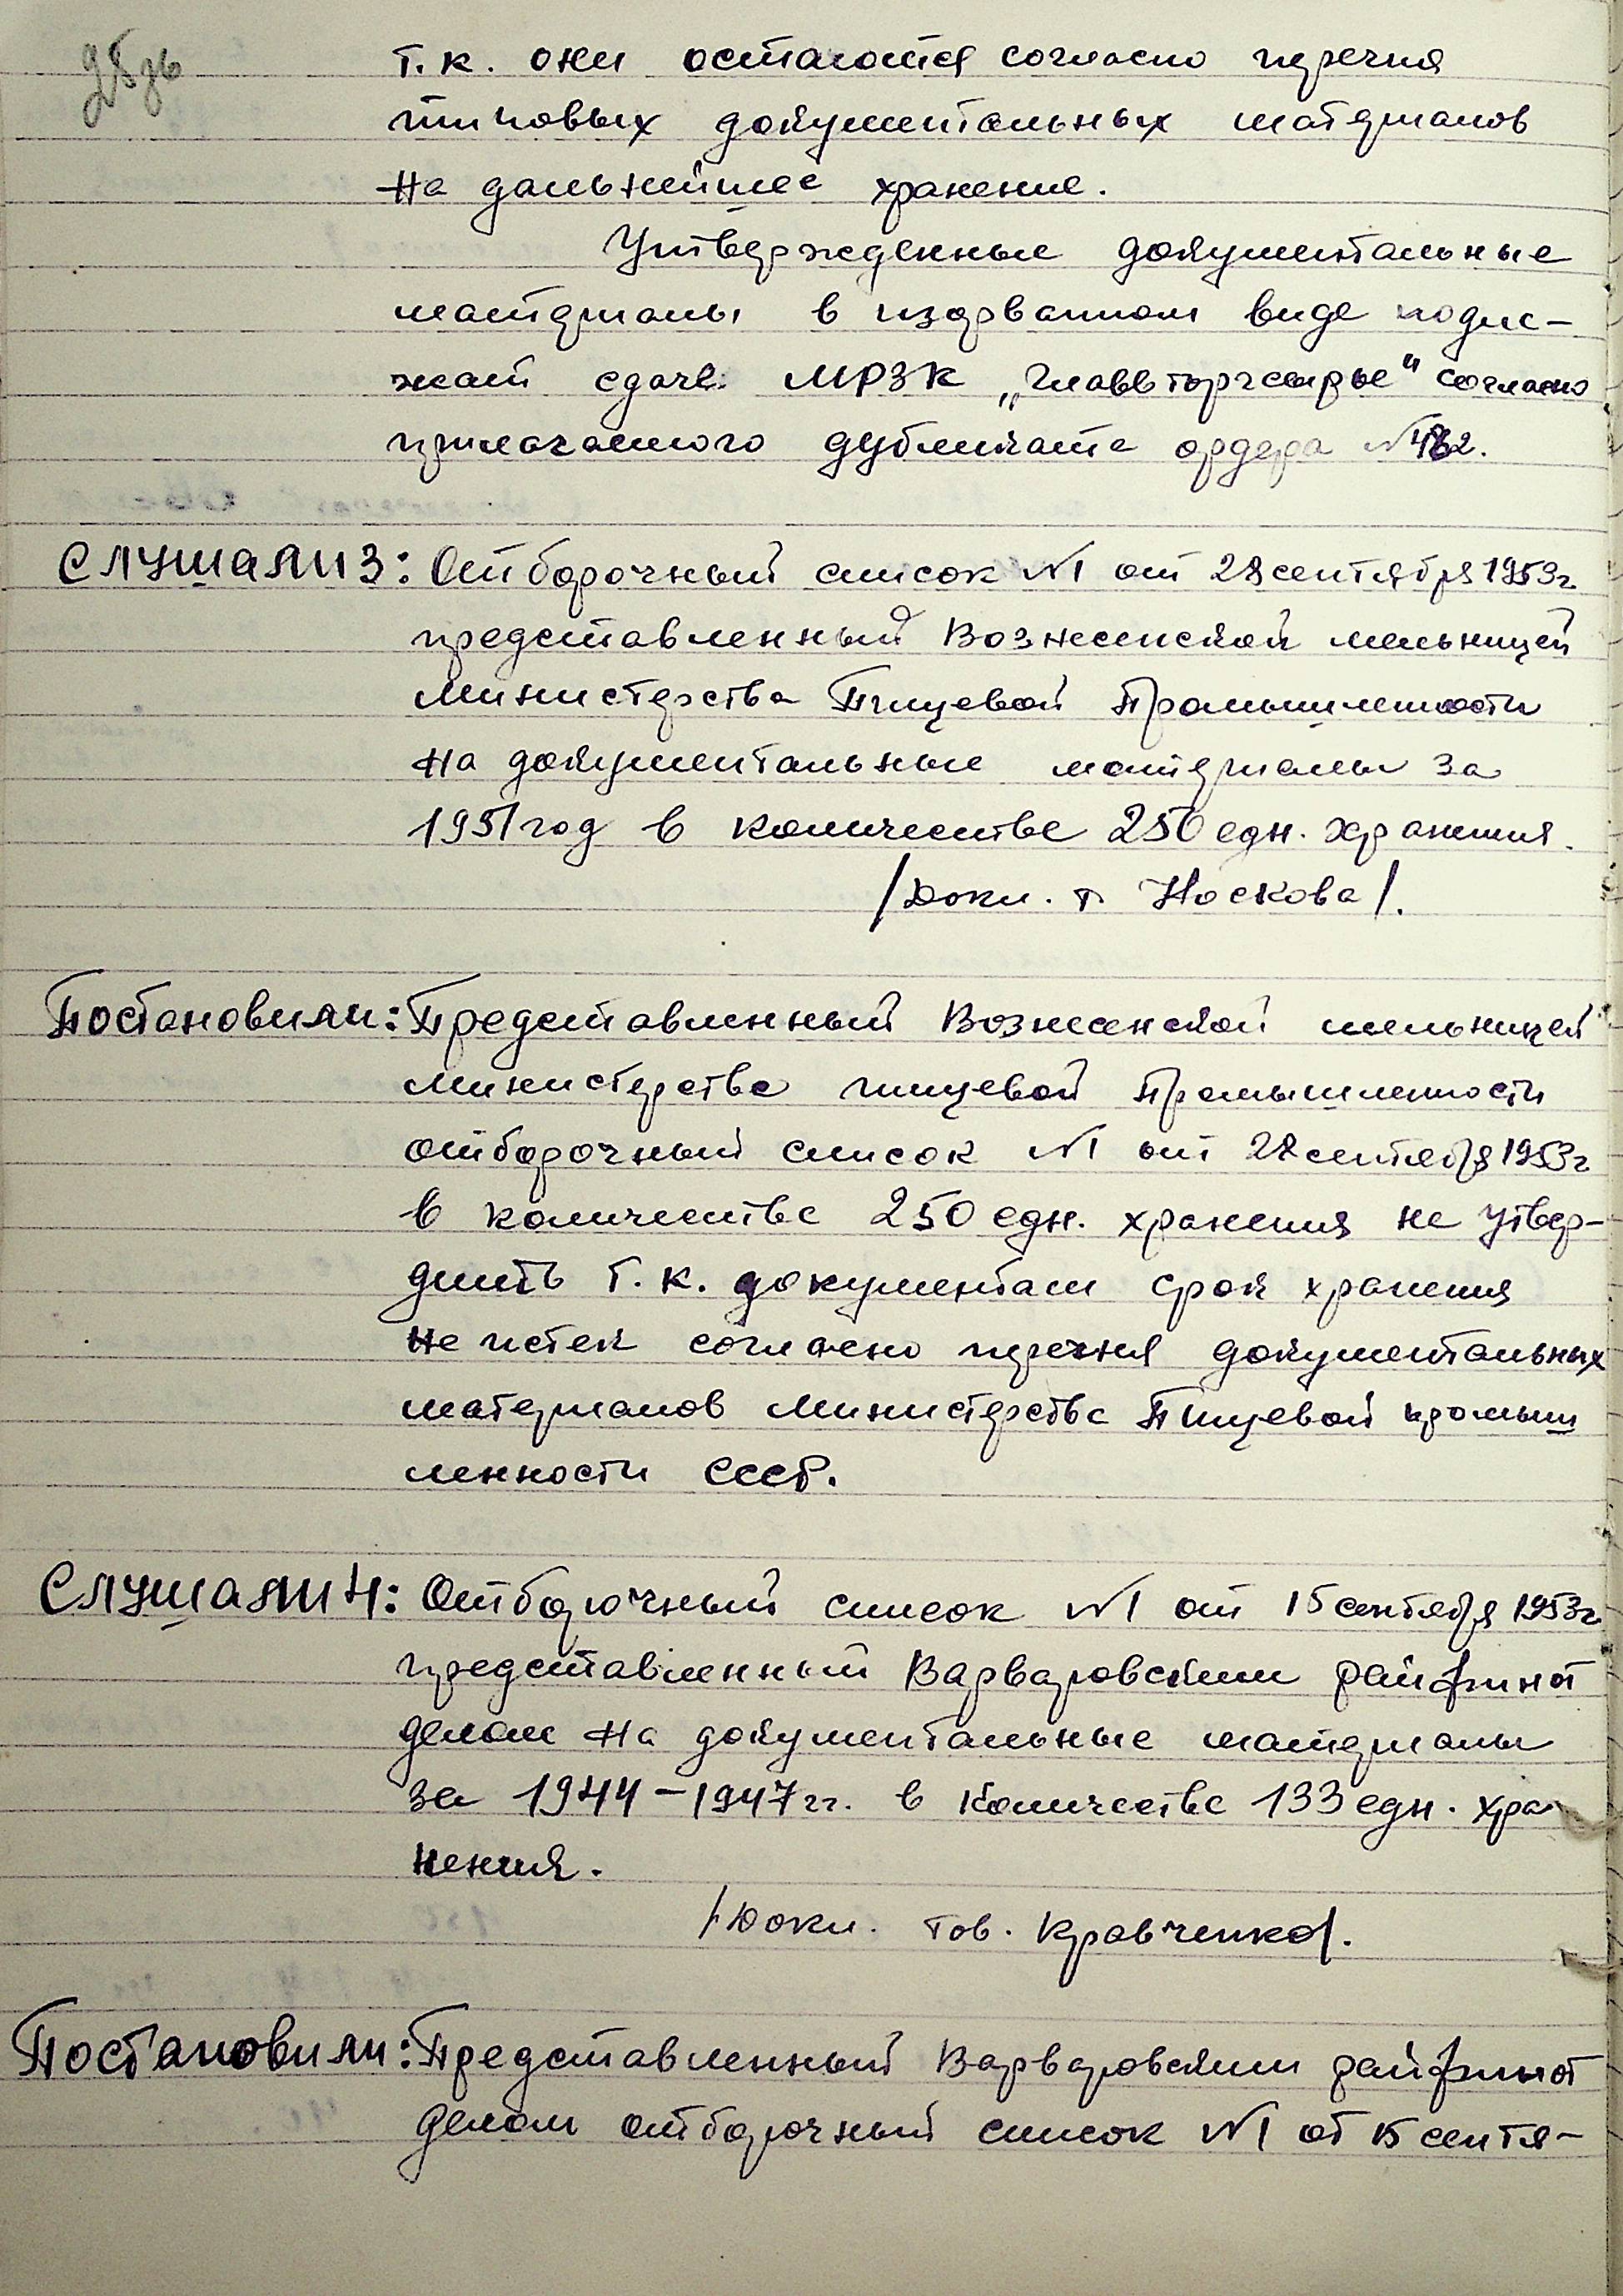 т.к. они остаются согласно перечня
типовых документальных материалов
на дальнейшее хранение.
Утвержденные документальные
материалы в изорванном виде подле-
жат сдаче МРЗК „Главвторчсырье" согласно
прилагаемого дубликата ордера №
СЛУШАЛИ 3: Отборочный список №1 от 28 сентября 1953г
представленный Вознесенской мельницей
Министерства Пищевой Промышленности
на документальные материалы за
1951 год в количестве 250 едн. хранения.
/Докл. т. Носкова/.
Постановили: Представленный Вознесенской мельницей
Министерства пищевой Промышленности
отборочный список №1 от 28 сентября 1953г
в количестве 250 едн. хранения не утвер-
дить т.к. документам срок хранения
не истек согласно перечня документальных
материалов Министерства Пищевой промыш
ленности СССР.
СЛУШАЛИ 4: Отборочный список №1 от 15 сентября 1953г
представленный Варваровским райфинот
делом на документальные материалы
за 1944-1947 гг. в количестве 133 едн. хра
нения.
/Докл. тов. Кравченко/.
Постановили: Представленный Варваровским райфинот
делом отборочный список №1 от 15 сентя-